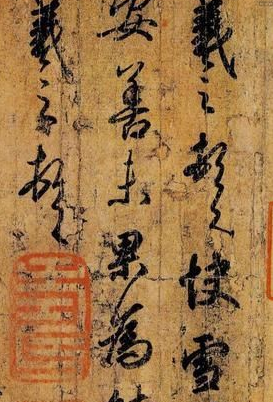 羲之頓首快雪
安善未果為
羲之頓首